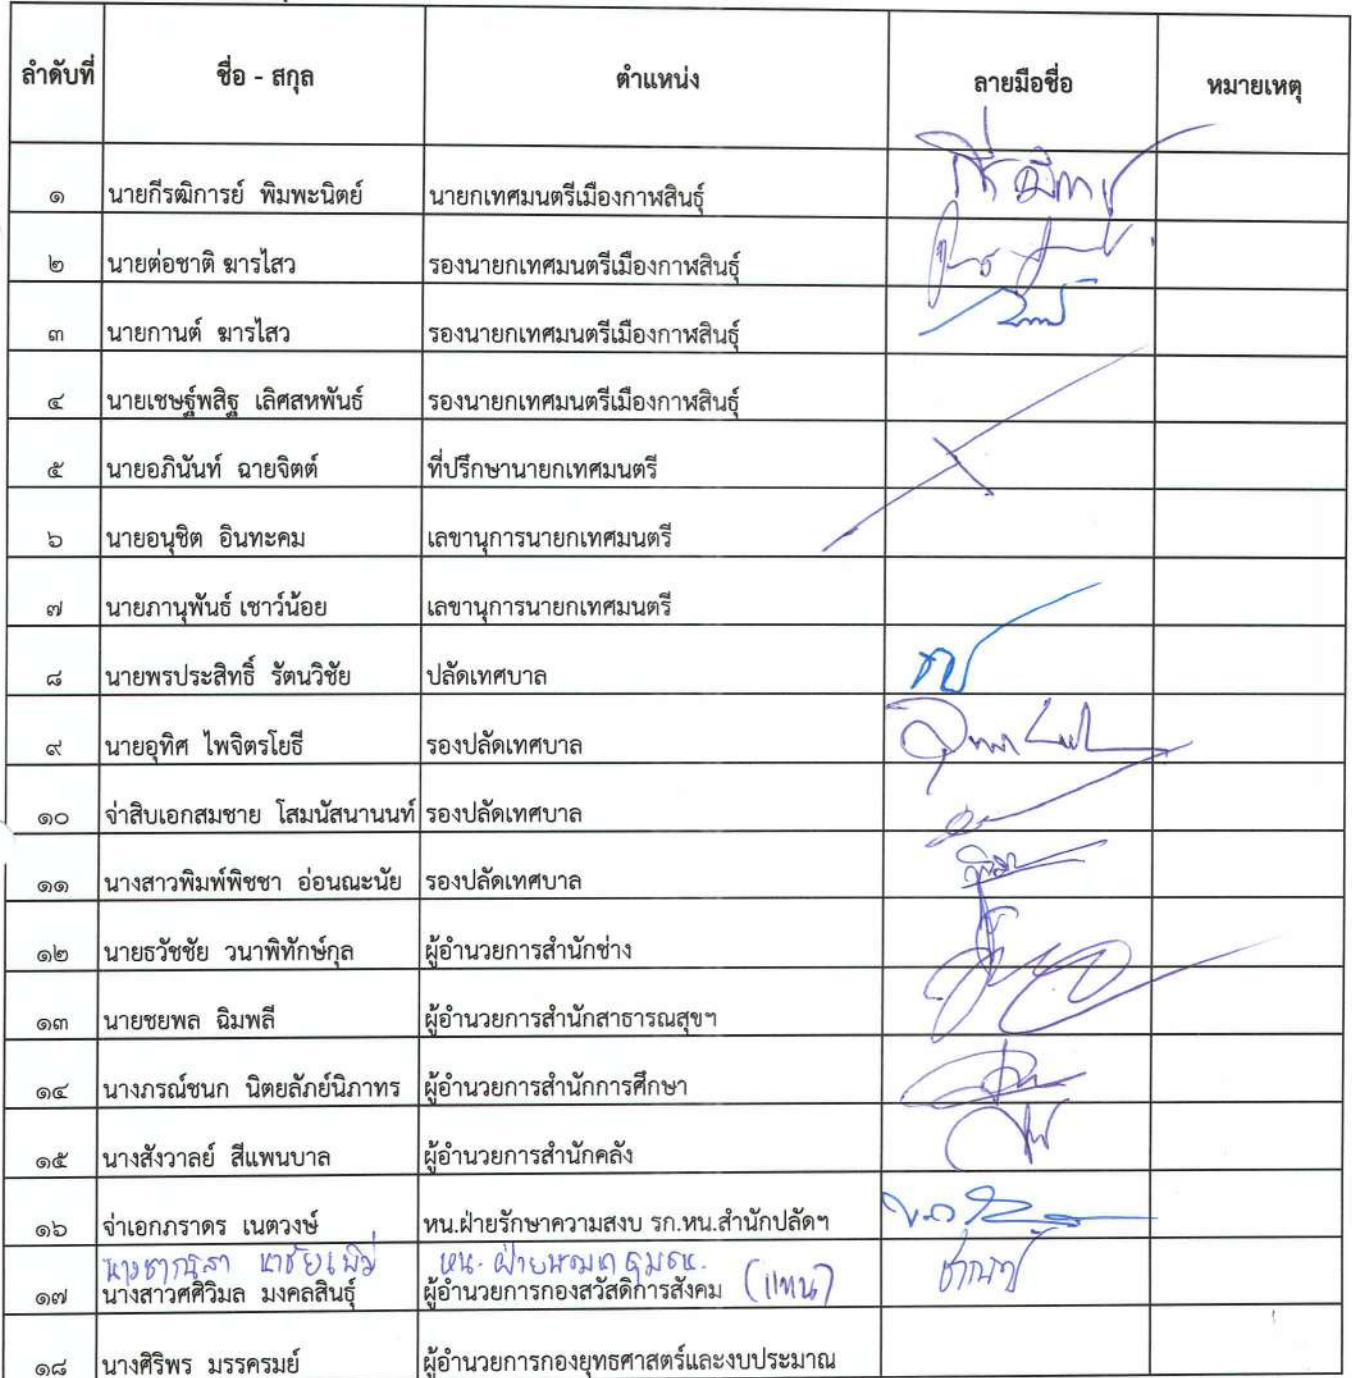 ลำดับที่ ชื่อ - สกุล ตำแหน่ง ลายมือชื่อ หมายเหตุ
๑ นายกีรฒิการย์ พิมพะนิตย์ นายกเทศมนตรีเมืองกาฬสินธุ์
๒ นายต่อชาติ ฆารไสว รองนายกเทศมนตรีเมืองกาฬสินธุ์
๓ นายกานต์ ฆารไสว รองนายกเทศมนตรีเมืองกาฬสินธุ์
๔ นายเชษฐ์พสิฐ เลิศสหพันธ์ รองนายกเทศมนตรีเมืองกาฬสินธุ์
๕ นายอภินันท์ ฉายจิตต์ ที่ปรึกษานายกเทศมนตรี
๖ นายอนุชิต อินทะคม เลขานุการนายกเทศมนตรี
๗ นายภานุพันธ์ เชาว์น้อย เลขานุการนายกเทศมนตรี
๘ นายพรประสิทธิ์ รัตนวิชัย ปลัดเทศบาล
๙ นายอุทิศ ไพจิตรโยธี รองปลัดเทศบาล
๑๐ จ่าสิบเอกสมชาย โสมนัสนานนท์ รองปลัดเทศบาล
๑๑ นางสาวพิมพ์พิชชา อ่อนณะนัย รองปลัดเทศบาล
๑๒ นายธวัชชัย วนาพิทักษ์กุล ผู้อำนวยการสำนักช่าง
๑๓ นายชยพล ฉิมพลี ผู้อำนวยการสำนักสาธารณสุขฯ
๑๔ นางภรณ์ชนก นิตยลัภย์นิภาทร ผู้อำนวยการสำนักการศึกษา
๑๕ นางสังวาลย์ สีแพนบาล ผู้อำนวยการสำนักคลัง
๑๖ จ่าเอกภราดร เนตวงษ์ หน.ฝ่ายรักษาความสงบ รก.หน.สำนักปลัดฯ
หน. ฝ่ายพัฒนาชุมชน.
๑๗ นางสาวศศิวิมล มงคลสินธุ์ ผู้อำนวยการกองสวัสดิการสังคม (แทน)
๑๘ นางศิริพร มรรครมย์ ผู้อำนวยการกองยุทธศาสตร์และงบประมาณ